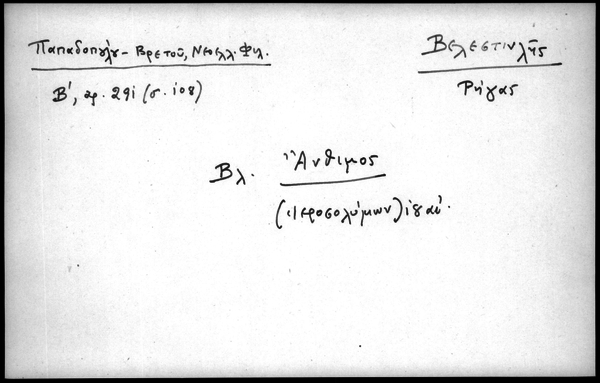 Παπαδοπούλου - Βρετοῦ, Νεοελλ. Φιλ.
Β', ἀρ. 291 (σ. 108)
Βελεστινλῆς
Ρήγας
Βλ. Ἄνθιμος
(Ἱεροσολύμων)